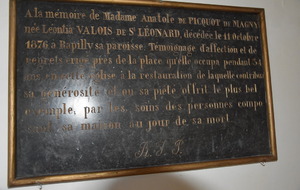 A la mémoire de Madame Anatole DE PICQUOT DE MAGNY
née Léontia VALOIS DE St LÉONARD, décédée le 11 Octobre
1876 à Rapilly sa paroisse. Témoignage d'affection et de
regrets érigé près de la place qu'elle occupa pendant 34
ans en cette église à la restauration de laquelle contribua
sa générosité et où sa piété offrit le plus bel
exemple, par les soins des personnes compo
sant sa maison au jour de sa mort.